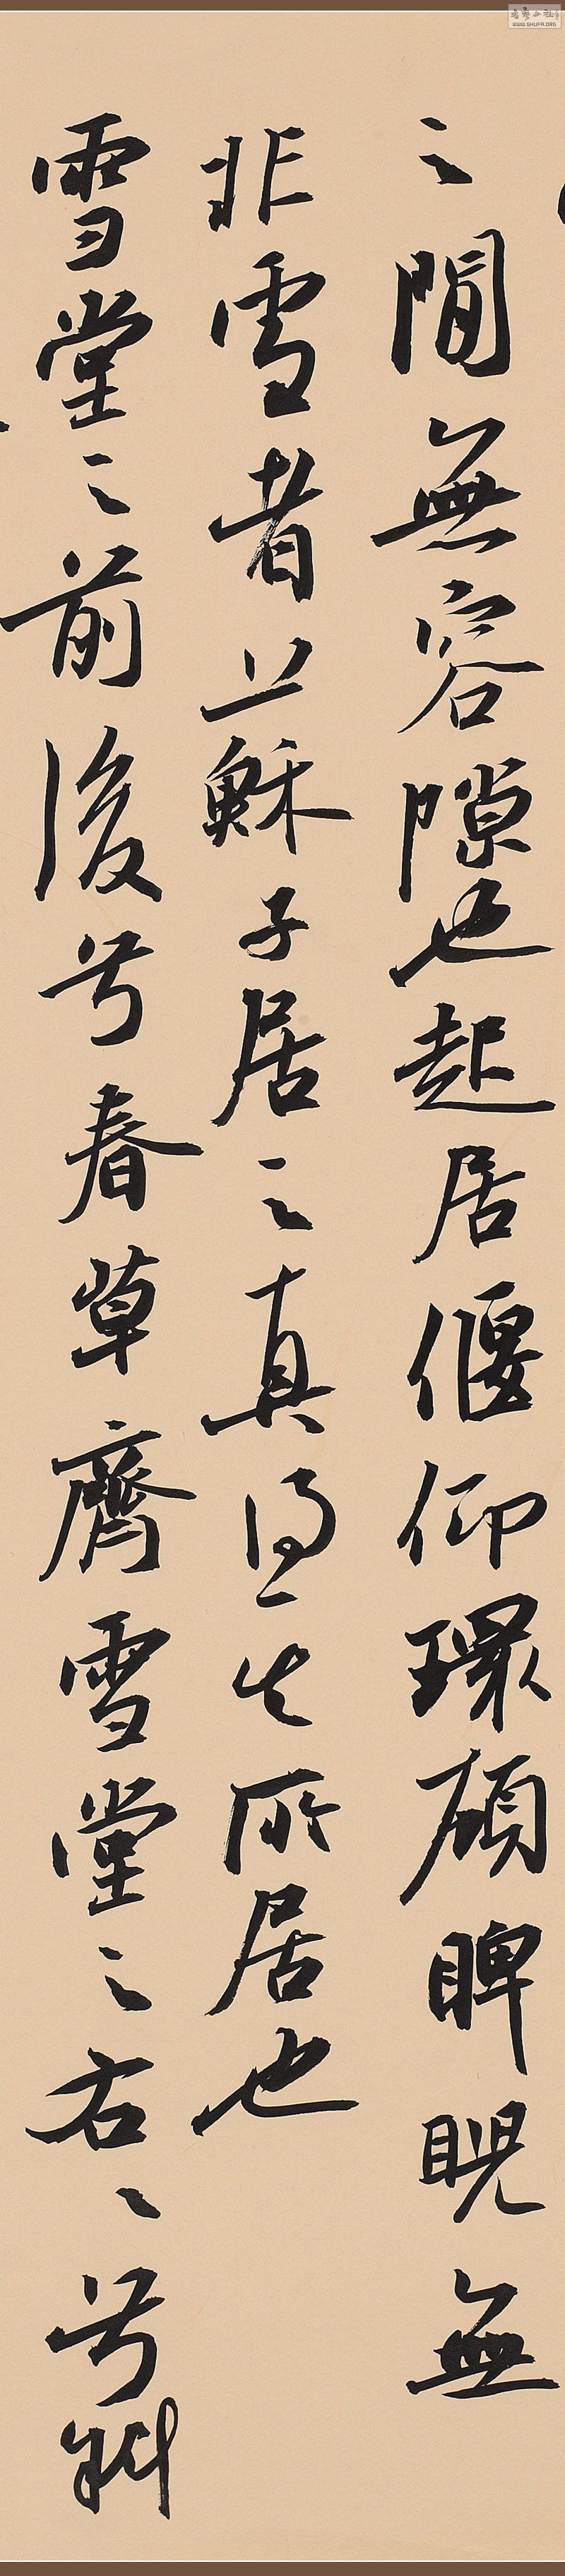 之間無容隙也起居偃仰環顧睥睨無
非雪者
蘇子居之真得其所居也
雪堂之前後兮春草齊雪堂之右兮斜
WWW.SHUFA.ORG